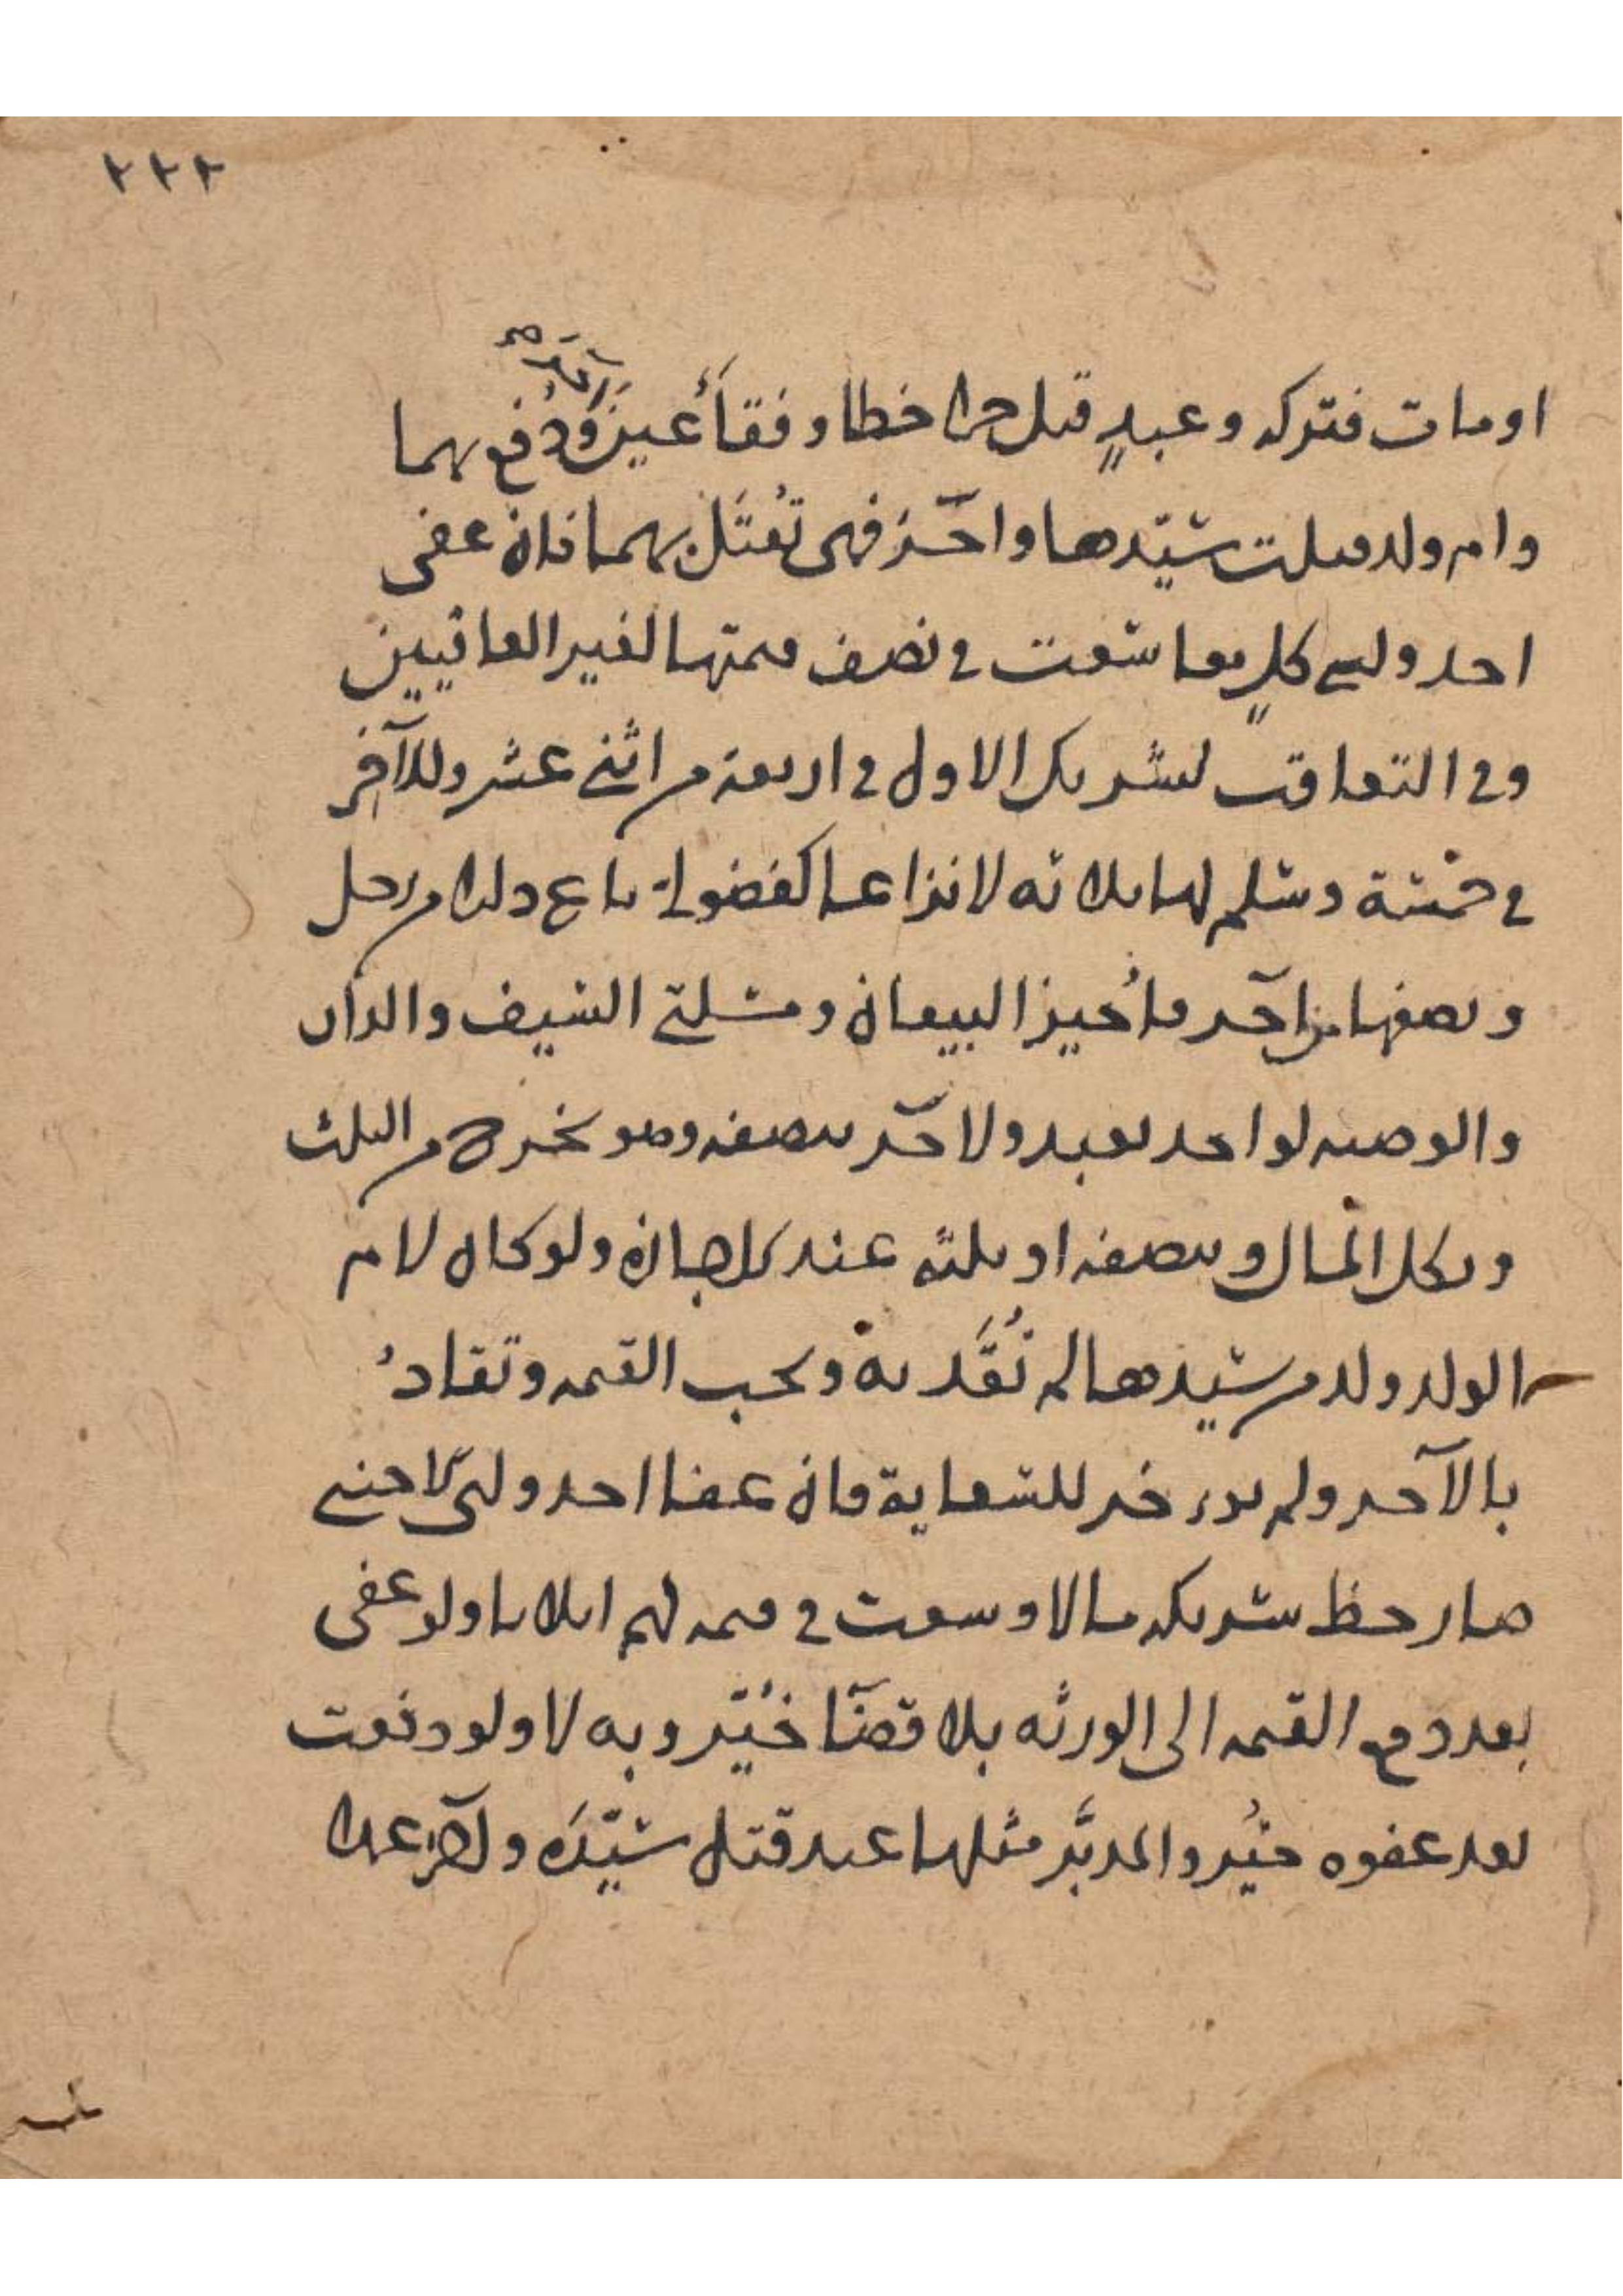 ٢٢٢
او مات فتركه وعبدٍ قتل حرا خطا وفقأ عين آخر ودُفع بهما
وام ولد قتلت سيّدها وآخر فهى تُقتَل بهما فان عفى
احد وليى كلٍ معا سعت فى نصف قيمتها لغير العافيين
وفى التعاقب لشريك الاول فى اربعة من اثنى عشر وللآخر
فى خمسة وسلم لها ثلاثه لا نزاعا كفضولى باع دارا من رجل
ونصفها من آخر فأُجيز البيعان ومسلتى السيف والدار
والوصيه لواحد بعبد ولآخر بنصفه وهو يخرج من الثلث
وبكل المال وبنصفه او ثلثه عند الاجازه ولو كان لام
الولد ولد من سيدها لم تُقَد به وتجب القيمه وتقادُ
بالآخر ولم يؤخر للسعاية فان عفا احد وليى الاجنبى
صار حظ شريكه مالا وسعت فى قيمه لهم اثلاثا ولو عفى
بعد دفع القيمه الى الورثه بلا قضآ خُيّر وبه لا ولو دفعت
بعد عفوه خيُر والمدبَّر مثلها عبد قتل سيّدَه وآخر عمدا